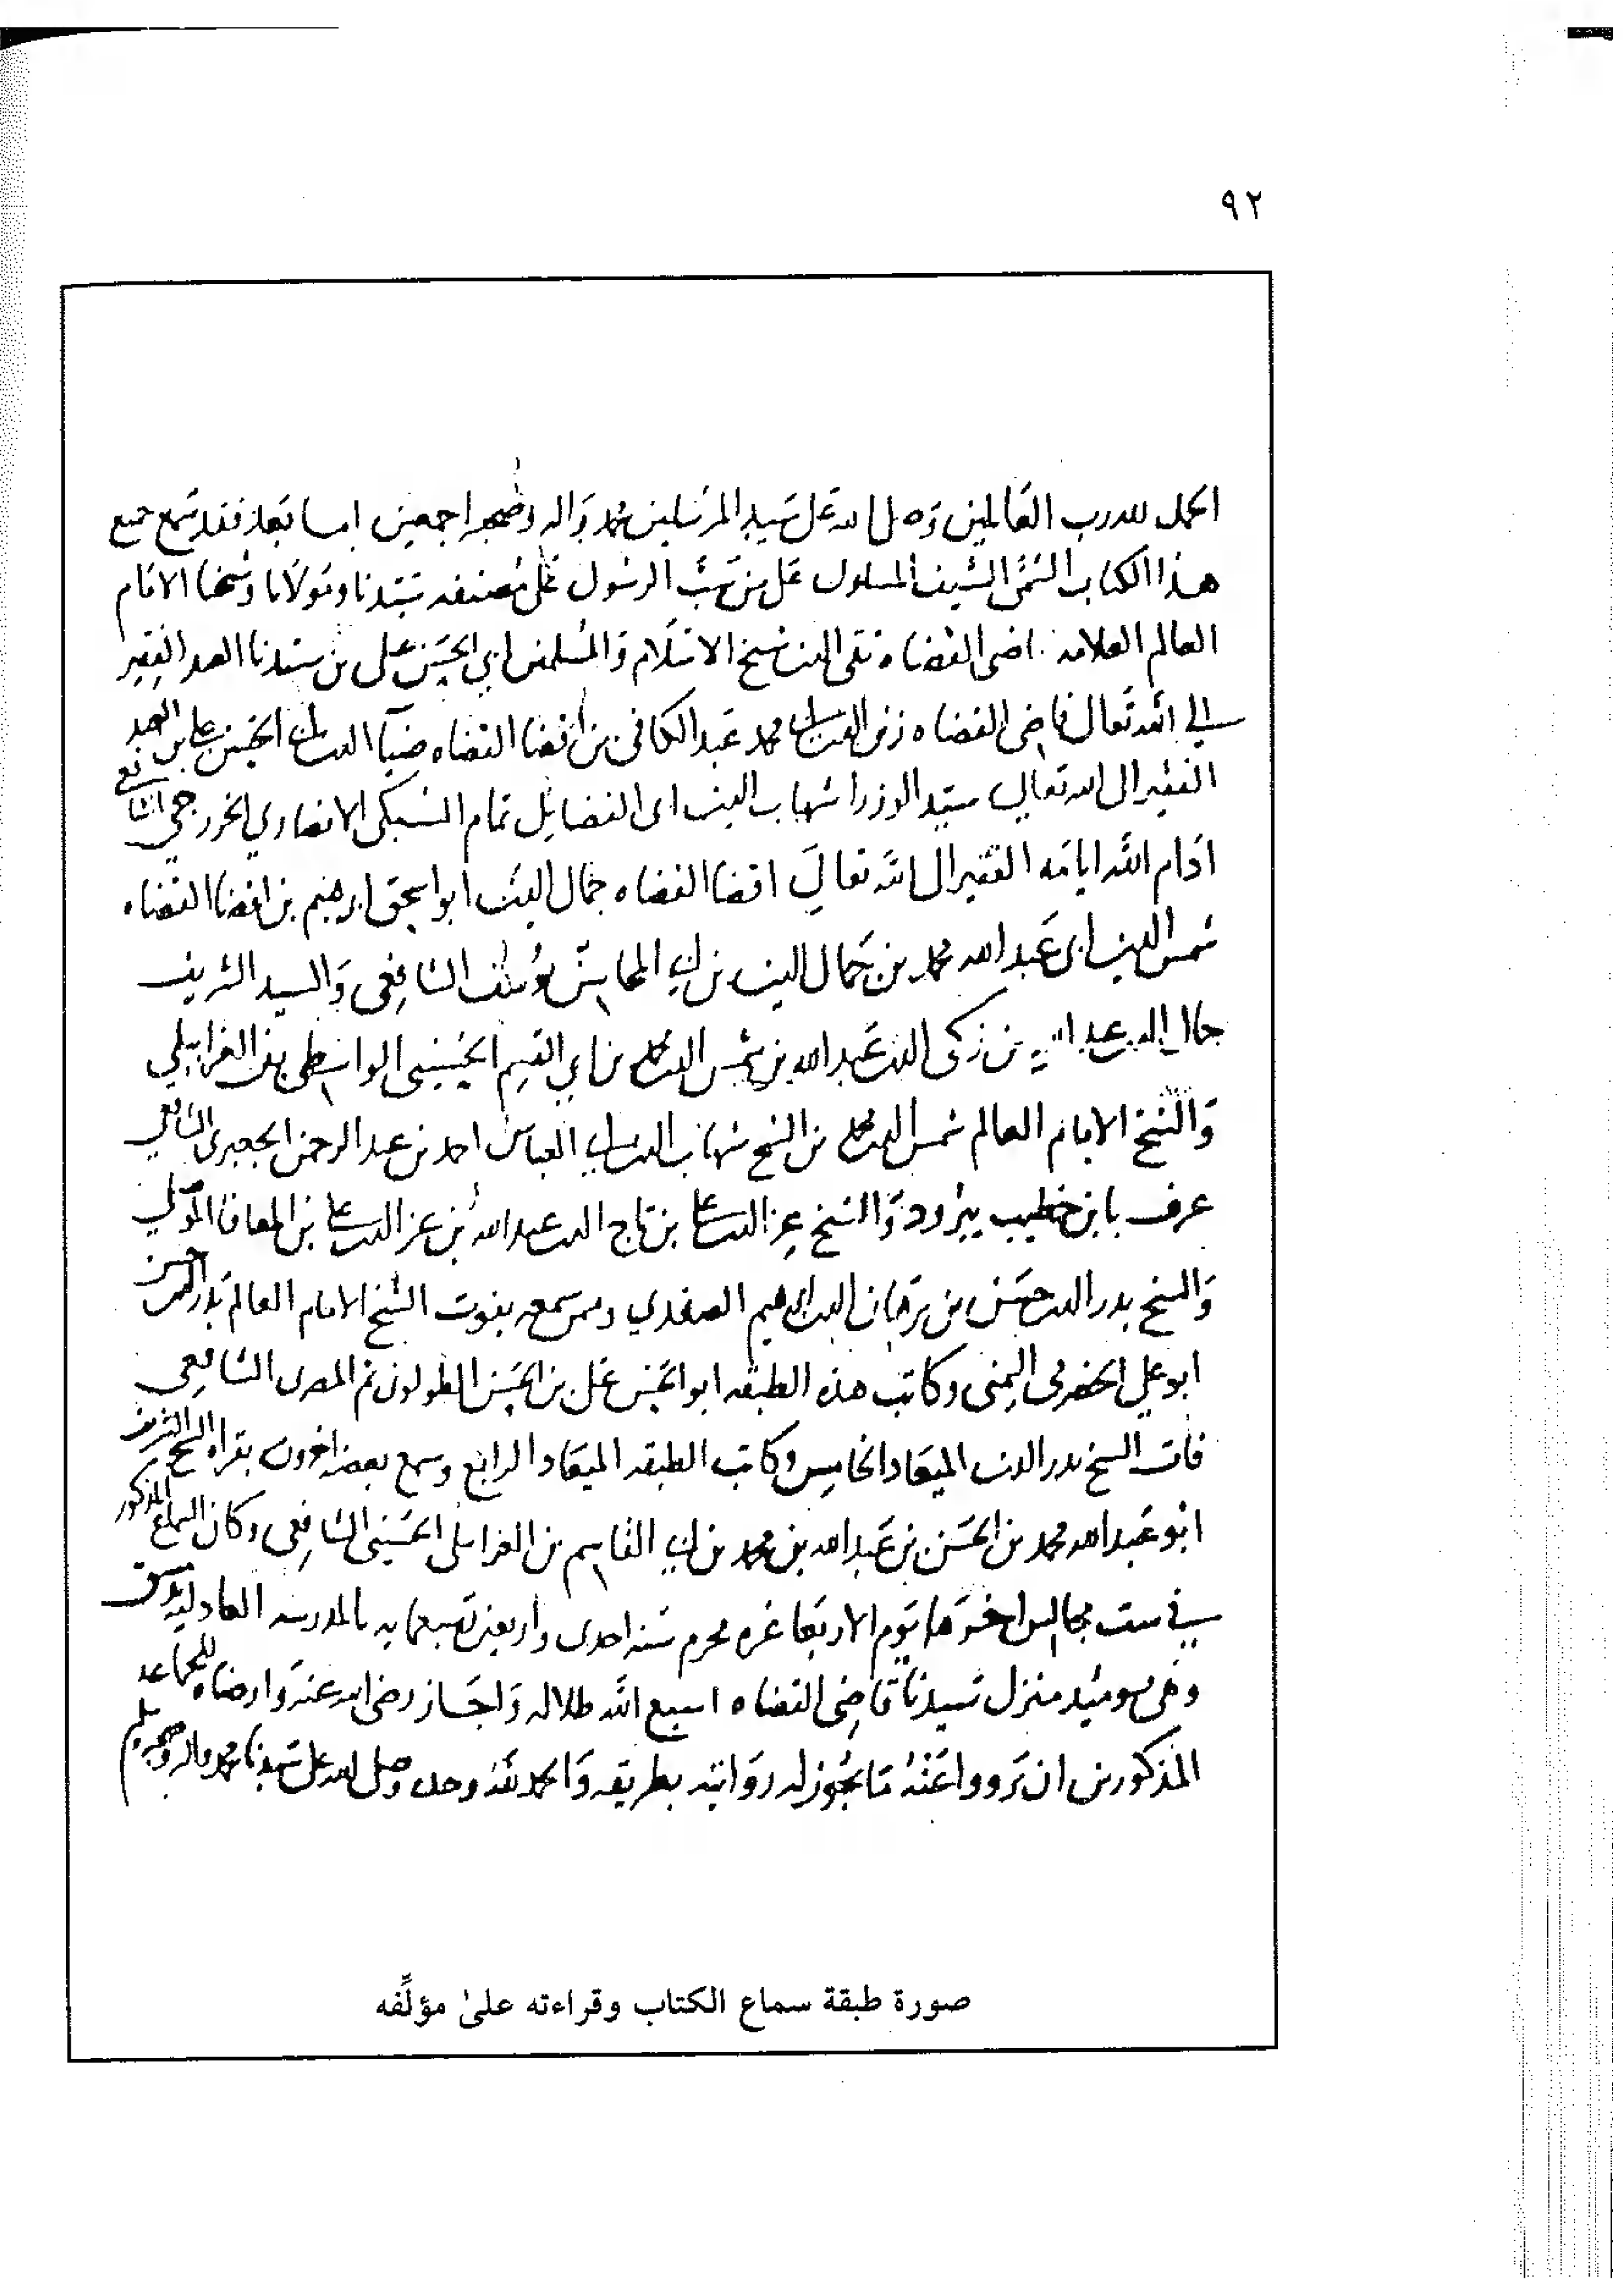 ٩٢
الحمد لله رب العالمين وصلى الله على سيد المرسلين محمد واله وصحبه اجمعين اما بعد فقد سمع جميع
هذا الكتاب المسمى السيف المسلول على من سب الرسول على مصنفه سيدنا ومولانا وشيخنا الامام
العالم العلامه اقضى القضاه تقي الدين شيخ الاسلام والمسلمين ابي الحسن علي بن سيدنا العبد الفقير
الى الله تعالى قاضي القضاه زين الدين ابي محمد عبد الكافي بن اقضا القضاه ضيا الدين ابي الحسن علي بن العبد
الفقير الى الله تعالى سيد الوزرا شهاب الدين ابي الفضايل تمام السبكي الانصاري الخزرجي الشافعي
ادام الله ايامه الفقير الى الله تعالى اقضا القضاه جمال الدين ابو اسحق ابرهيم بن اقضا القضاه
شمس الدين ابي عبد الله محمد بن جمال الدين بن ابي المحاسن يوسف الشافعي والسيد الشريف
بن زكي الدين عبد الله بن شمس الدين محمد بن ابي القسم الحسيني الواسطي بن الغرابيلي
والشيخ الامام العالم شمس الدين محمد بن الشيخ شهاب الدين ابي العباس احمد بن عبد الرحمن الجعبري الشافعي
عرف بابن خطيب يبرود والشيخ عز الدين علي بن تاج الدين عبد الله بن عز الدين علي بن المعافا الموصلي
والشيخ بدر الدين حسن بن برهان الدين ابراهيم الصفدي وممن سمعه بفوت الشيخ الامام العالم بدر الدين حسن
ابو علي الحضرمي اليمني وكاتب هذه الطبقه ابو الحسن علي بن الحسن الطولوني ثم المصري الشافعي
فات الشيخ بدر الدين الميعاد الخامس وكاتب الطبقه الميعاد الرابع وسمع بعضه اخرون بقراه الشيخ الشريف
ابو عبد الله محمد بن الحسن بن عبد الله بن محمد بن ابي القاسم بن الغرابيلي الحسيني الشافعي وكان السماع المذكور
في ست مجالس اخرها يوم الاربعا غره محرم سنه احدى واربعين وسبعمايه بالمدرسه العادليه بدمشق
وهي يوميذ منزل سيدنا قاضي القضاه اسبغ الله ظلاله واجاز رضي الله عنه وارضاه للجماعه
المذكورين ان يرووا عنه ما يجوز له روايته بطريقه والحمد لله وحده وصلى الله على سيدنا محمد واله وصحبه وسلم
صورة طبقة سماع الكتاب وقراءته علىٰ مؤلِّفه